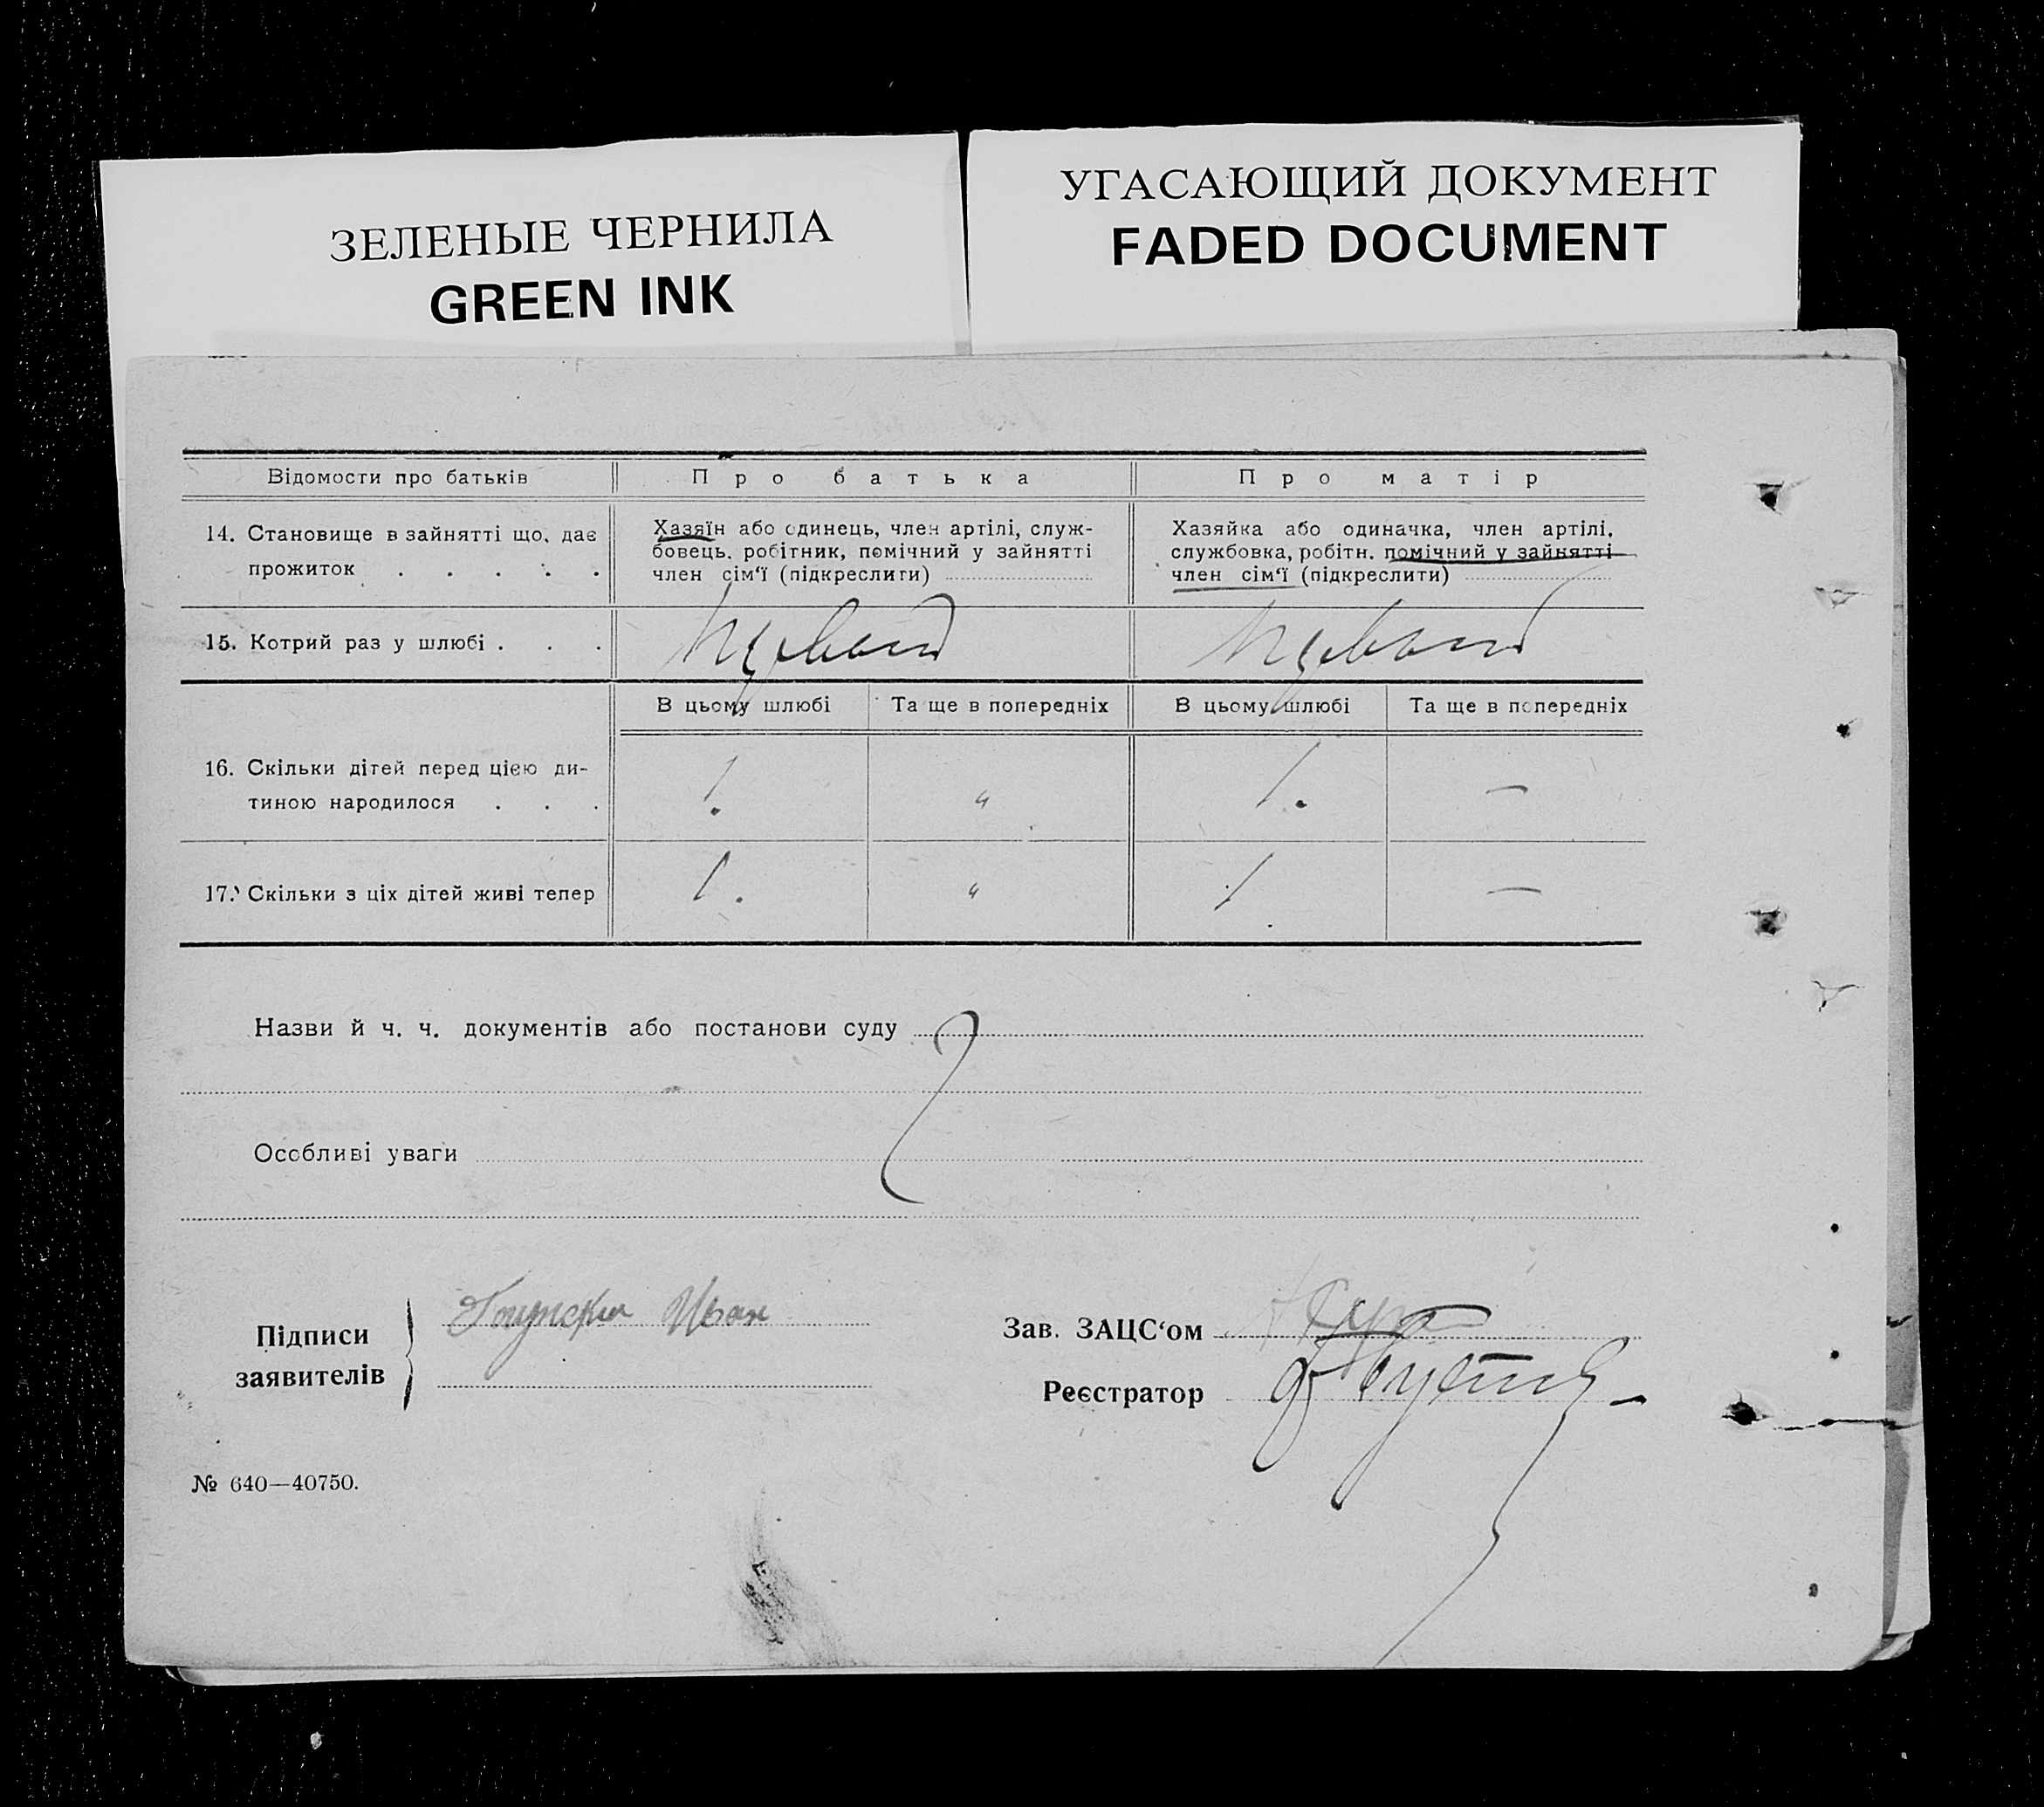 ЗЕЛЕНЫЕ ЧЕРНИЛА
GREEN INK
УГАСАЮЩИЙ ДОКУМЕНТ
FADED DOCUMENT
Відомости про батьків
Про батька
Про матір
14. Становище в зайнятті що, дає
прожиток . . . . .
Хазяїн або одинець, член артілі, служ-
бовець, робітник, помічний у зайнятті
член сім'ї (підкреслити)
Хазяйка або одиначка, член артілі,
службовка, робітн. помічний у зайнятті
член сім'ї (підкреслити)
15. Котрий раз у шлюбі . . .
В цьому шлюбі
Та ще в попередніх
В цьому шлюбі
Та ще в попередніх
16. Скільки дітей перед цією ди-
тиною народилося . . .
1. " 1. —
17. Скільки з ціх дітей живі тепер
1. " 1. —
Назви й ч. ч. документів або постанови суду
Особливі уваги
Підписи
заявителів
Иван
Зав. ЗАЦС'ом
Реєстратор
№ 640—40750.